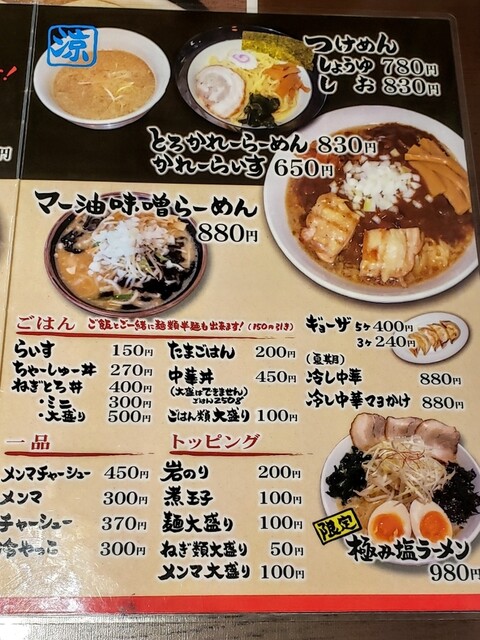 涼
つけめん
しょうゆ 780円
しお 830円
とろかれーらーめん 830円
かれーらいす 650円
マー油味噌らーめん
880円
ごはん ご飯とご一緒に麺類半麺も出来ます!(150円引き)
らいす 150円
ちゃーしゅー丼 270円
ねぎとろ丼 400円
・ミニ 300円
・大盛り 500円
たまごはん 200円
中華丼 450円
(大盛はできません)
ごはん250g
ごはん類大盛り 100円
ギョーザ 5ケ 400円
3ケ 240円
(夏季用)
冷し中華 880円
冷し中華マヨかけ 880円
一品
メンマチャーシュー 450円
メンマ 300円
チャーシュー 370円
冷やっこ 300円
トッピング
岩のり 200円
煮玉子 100円
麺大盛り 100円
ねぎ類大盛り 50円
メンマ大盛り 100円
限定
極み塩ラーメン
980円